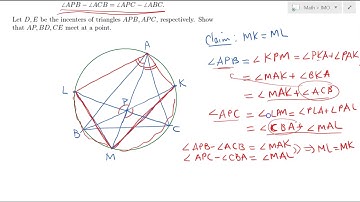 Math + IMO
∠APB − ∠ACB = ∠APC − ∠ABC.
Let D, E be the incenters of triangles APB, APC, respectively. Show
that AP, BD, CE meet at a point.
Claim: MK = ML
∠APB = ∠KPM = ∠PKA + ∠PAK
= ∠MAK + ∠BKA
= ∠MAK + ∠ACB
∠APC = ∠LPM = ∠PLA + ∠PAL
= ∠CBA + ∠MAL
∠APB − ∠ACB = ∠MAK
∠APC − ∠CBA = ∠MAL
⇒ ML = MK
A
K
L
P
B
C
M